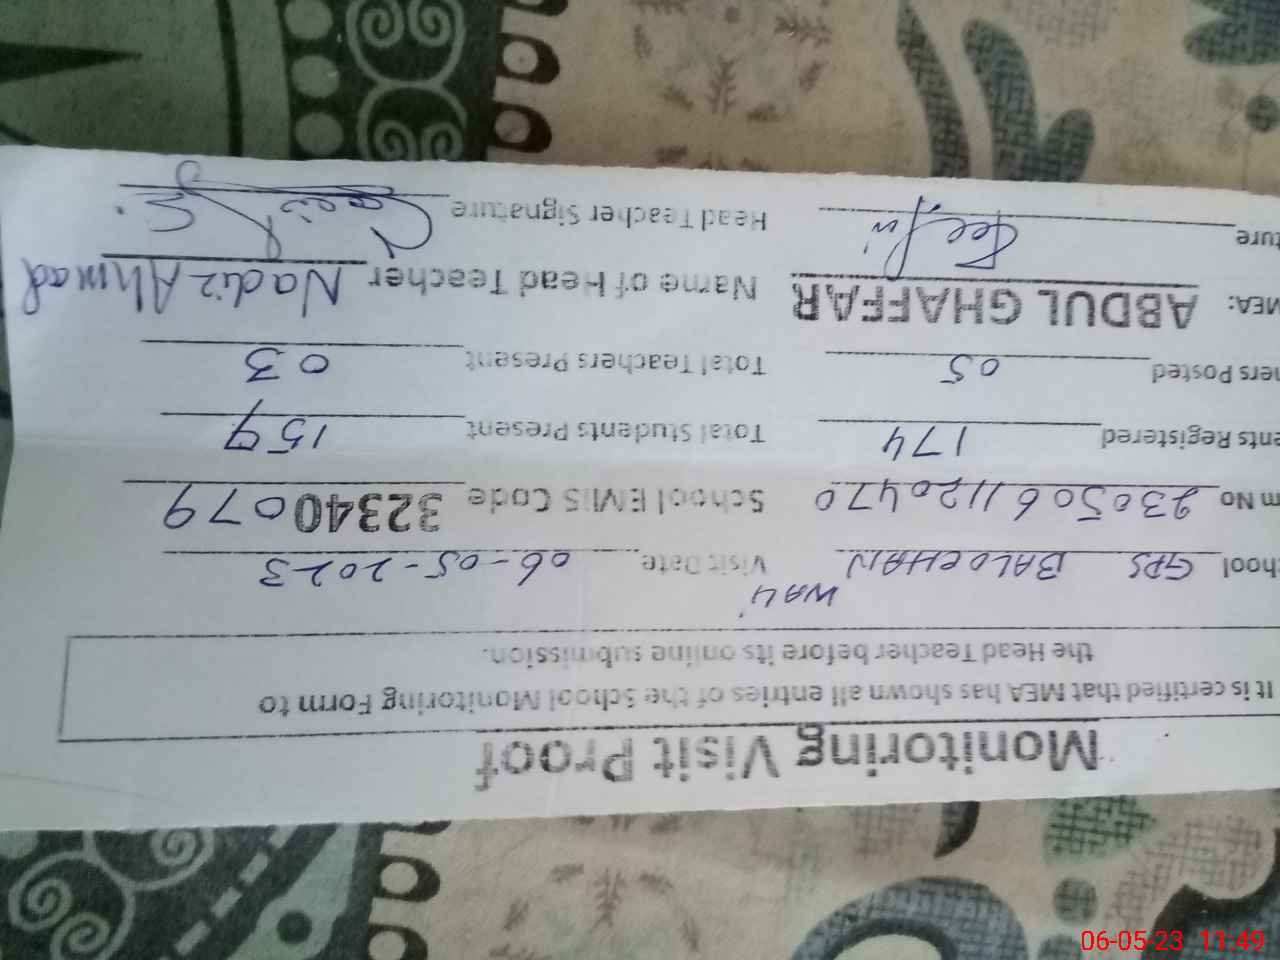 Monitoring Visit Proof
It is certified that MEA has shown all entries of the School Monitoring Form to
the Head Teacher before its online submission.
hool GPS BALOCHAN WALI Visit Date 06-05-2023
m No 2305061120470 School EMIS Code 32340079
ents Registered 174 Total Students Present 159
hers Posted 05 Total Teachers Present 03
MEA: ABDUL GHAFFAR Name of Head Teacher Nadir Ahmad
ture Head Teacher Signature
06-05-23 11:49